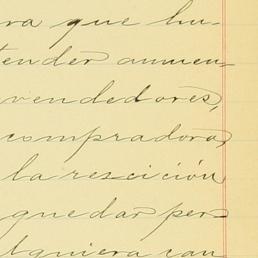 ra que hu-
tender aumen-
vendedores,
compradora,
la rescición
quedar per-
lquiera can